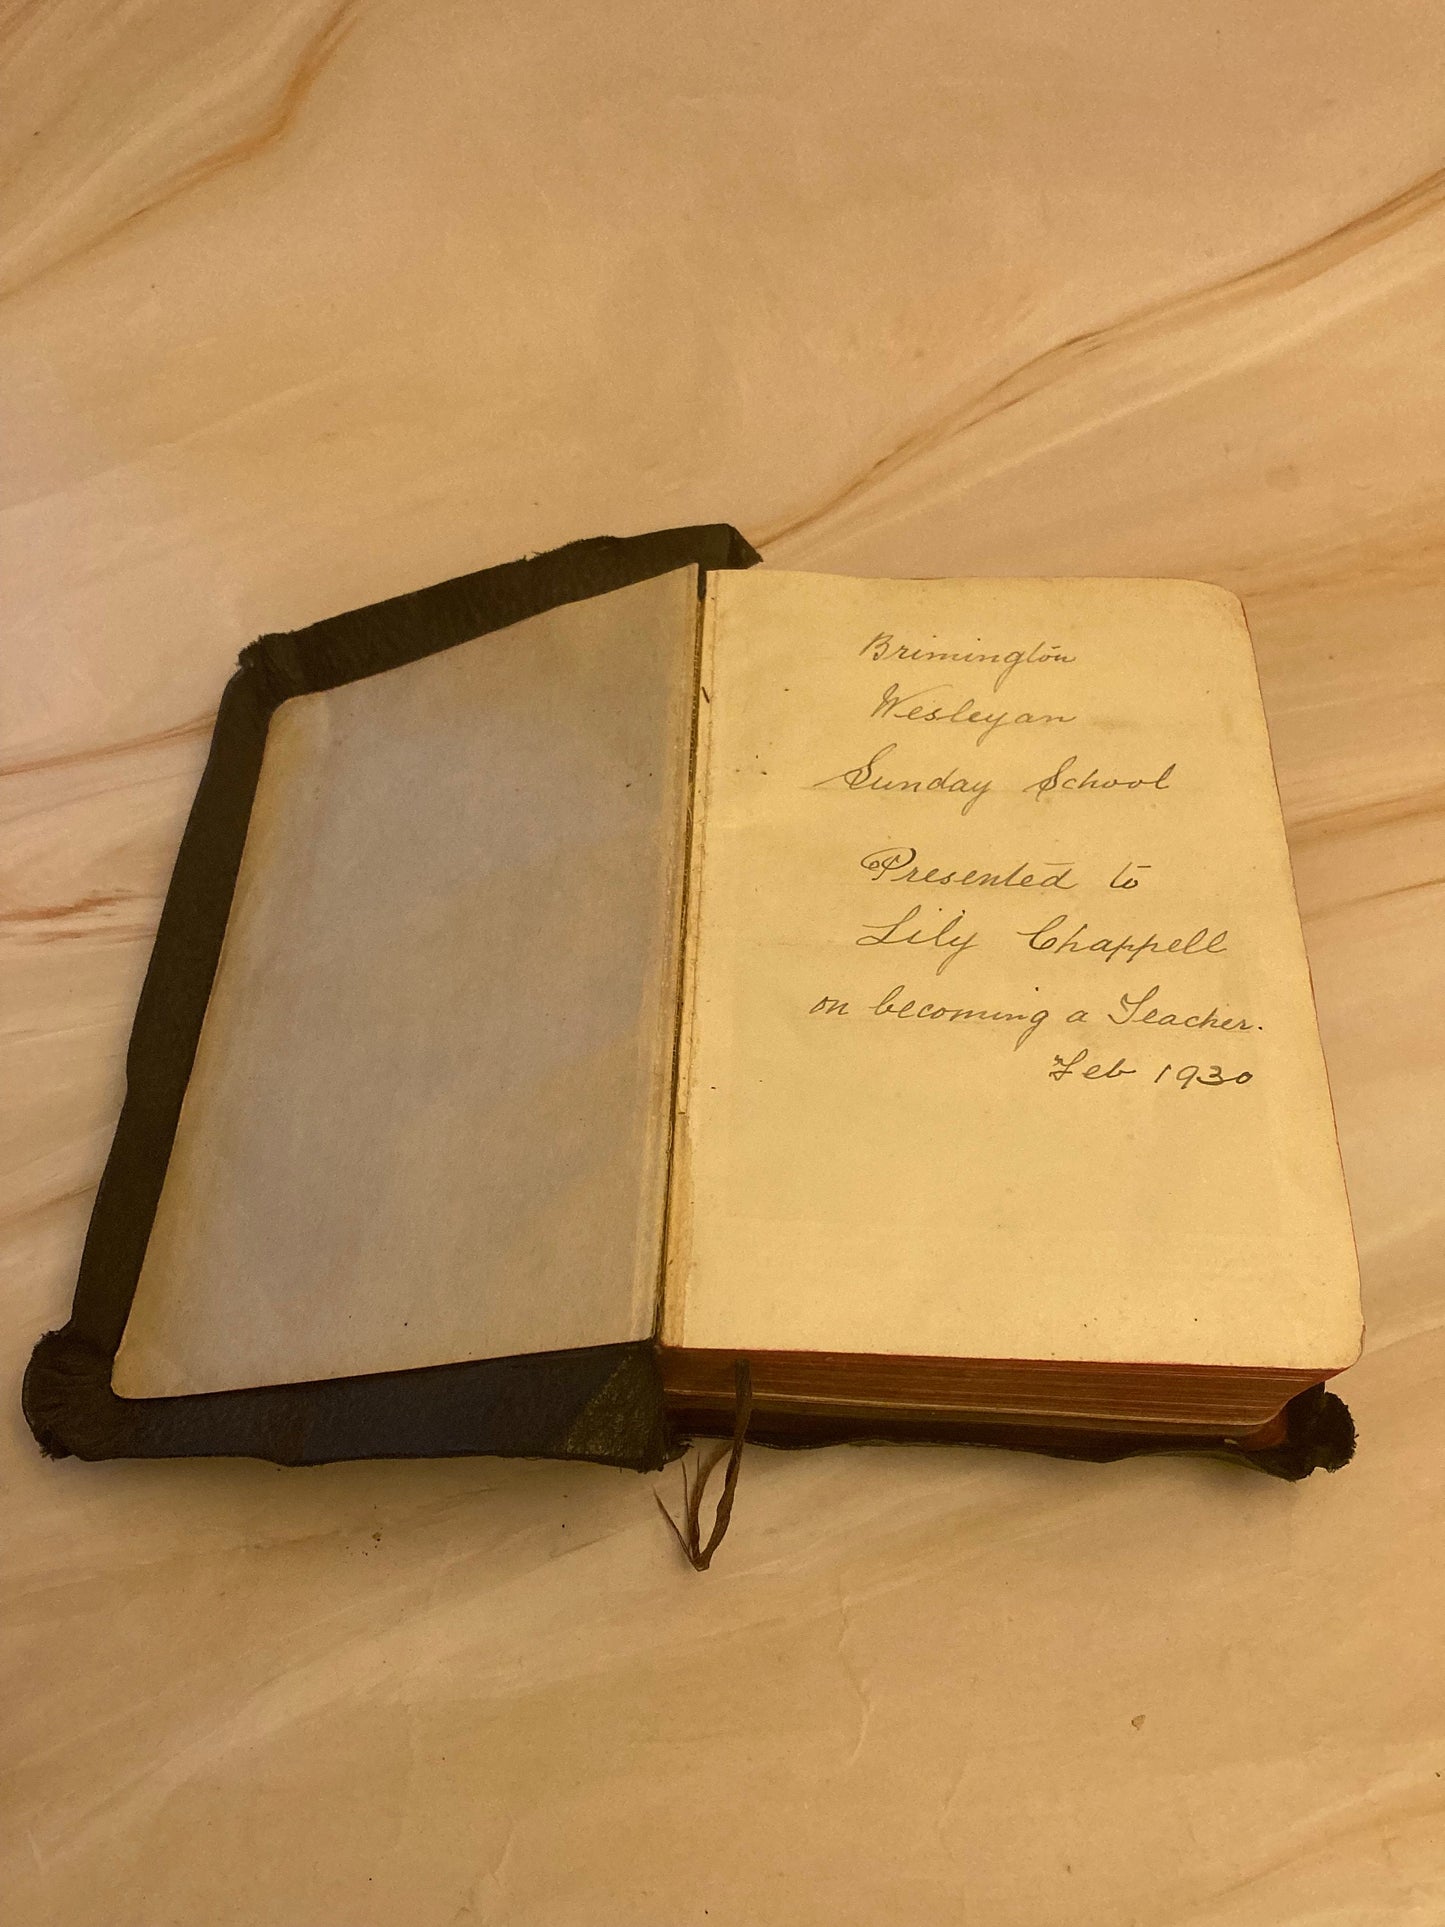 Brimington
Wesleyan
Sunday School
Presented to
Lily Chappell
on becoming a Teacher.
Feb 1930